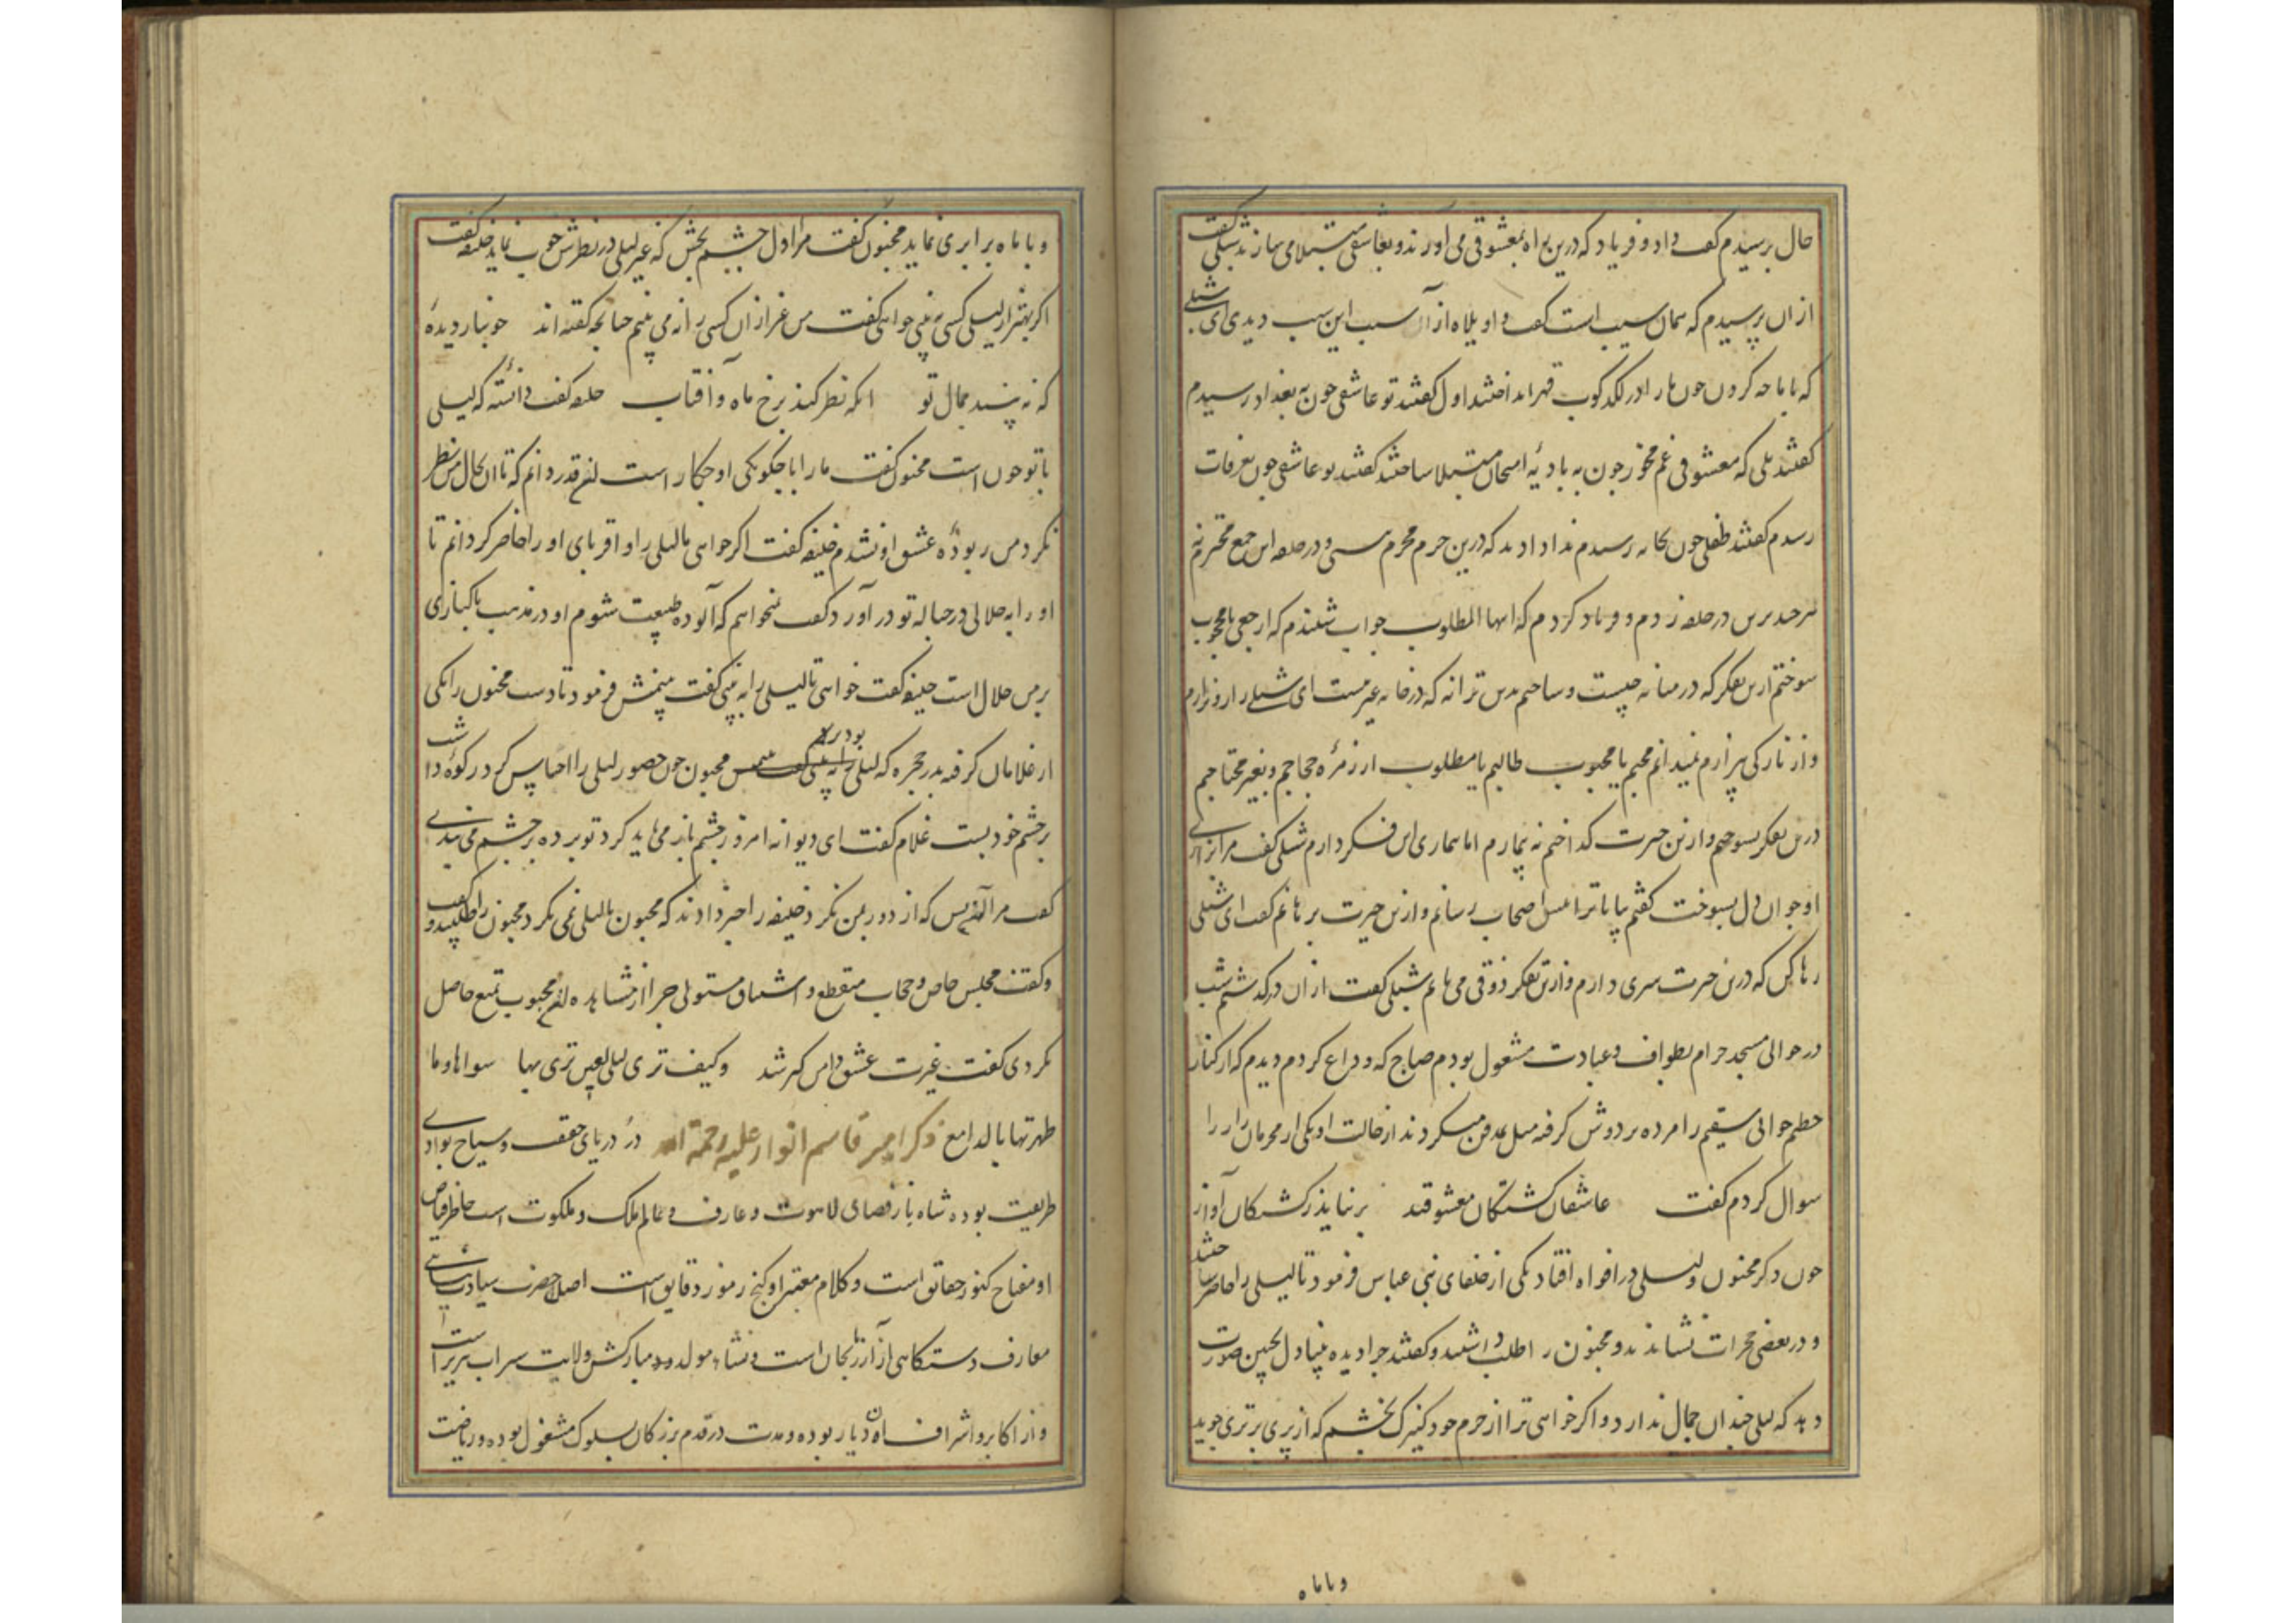 حال پرسیدم گفت داد و فریاد که درین راه بمعشوقی می آورند و بعاشقی مبتلا می سازند شبلی گفت
ازان پرسیدم که همان سیب است گفت واویلاه از آن سیب این سیب دیدی ای شبلی
که با ما چه کردن چون ما را در لکدکوب قهر انداختند اول گفتند تو عاشقی چون به بغداد رسیدم
گفتند بلی که معشوقی غم مخور چون به بادیه امتحان مبتلا ساختند گفتند تو عاشقی چون بعرفات
رسیدم گفتند طفلی چون بخانه رسیدم ندا دادند که درین حرم محرم نیستی و در حلقه این جمع محترم نه
هر چند برین در حلقه زدم و فریاد کردم که ایها المطلوب جواب شنیدم که ارجعی یا محجوب
سوختم ازین تفکر که در میانه چیست ای شبلی
و از نار کی بیزارم نمیدانم محبم یا محبوب طالبم یا مطلوب از زمره حجاجم و بغیر محتاجم
درین تفکر بسوختم و ازین حیرت کداختم نه بیمارم اما بیماری این فکر دارم شبلی گفت مرا بزاری
او جوان دل بسوخت گفتم بیا تا ترا میان اصحاب رسانم و ازین حیرت برهانم گفت ای شبلی
رها کن که درین حیرت سری دارم و ازین تفکر ذوقی می یابم شبلی گفت ازان درکدشتم شب
در حوالی مسجد حرام بطواف و عبادت مشغول بودم صباح که وداع کردم دیدم که از کنار
حطیم جوانی سقیم را مرده بر دوش کرفته میل مدفن میکردند از حالت او یکی از محرمان راز را
سوال کردم گفت عاشقان کشتکان معشوقند برنیاید ز کشتکان آواز
چون ذکر مجنون و لیلی در افواه افتاد یکی از خلفای بنی عباس فرمود تا لیلی را حاضر ساختند
و در بعضی حجرات نشاندند و مجنون را طلب داشتند و گفتند چرا دیده بینا دل بچنین صورت
دید که لیلی چندان جمال ندارد و اکر خواهی ترا از حرم خود کنیزک بخشم که از پری برتری جوید
وبا ماه
وبا ماه برابری نماید مجنون گفت مرا دل چشم بخش که غیر لیلی در نظرش خوب نماید خلیفه گفت
اکر بهتر از لیلی کسی به بینی خواهی گفت من غیر ازان کسی را نه می بینم چنانچه کفته اند خونبار دیده
که نه بیند جمال تو انکه نظر کند برخ ماه و آفتاب خلیفه گفت دانسته که لیلی
با تو چون است مجنون گفت ما را با چکونکی او چکار است این قدر دانم که تا آن بحال من نظر
نکرد من ربوده عشق او نشدم خلیفه گفت اکر خواهی ما لیلی را و اقربای او را حاضر کردانم تا
او را به حلالی در حباله تو در آورد گفت نمیخواهم که آلوده طبیعت شوم او در مذهب پاکبازی
بر من حلال است خلیفه گفت خواهی تا لیلی را به بینی گفت بینمش فرمود تا دست مجنون را یکی
از غلامان کرفته بدر حجره که لیلی بود برد مجنون چون حضور لیلی را احساس کرد در کوشه دامنش
بر چشم خود بست غلام گفت ای دیوانه امروز چشم باز می باید کرد تو پرده بر چشم می بندی
گفت مرا آن بس که از دور بمن نکرد خلیفه را خبر دادند که مجنون بالیلی نمی نکرد مجنون را طلبید و گفت
و گفت مجلس خاص و حجاب منقطع و اشتیاق مستولی چرا از مشاهده این محبوب تمتع حاصل
نکردی گفت غیرت عشق دامن کیر شد وکیف تری لیلی بعین تری بها سواها وما
طهرتها بالمدامع ذکر امیر قاسم انوار علیه رحمة الله در دریای حقیقت و سیاح بوادی
طریقت بوده شاه باز فضای لاهوت و عارف و عالم ملک و ملکوت است خاطر فیاض
او مفتاح کنوز حقایق است و کلام معتبر او کنج رموز دقایق است اصل حضرت سیادت
معارف دستکاهی از آذربایجان است و منشاء مولد و مبارکش ولایت سراب تبریز است
و از اکابر و اشراف آن دیار بوده و مدت در قدم بزرکان بسلوک مشغول بوده و ریاضت